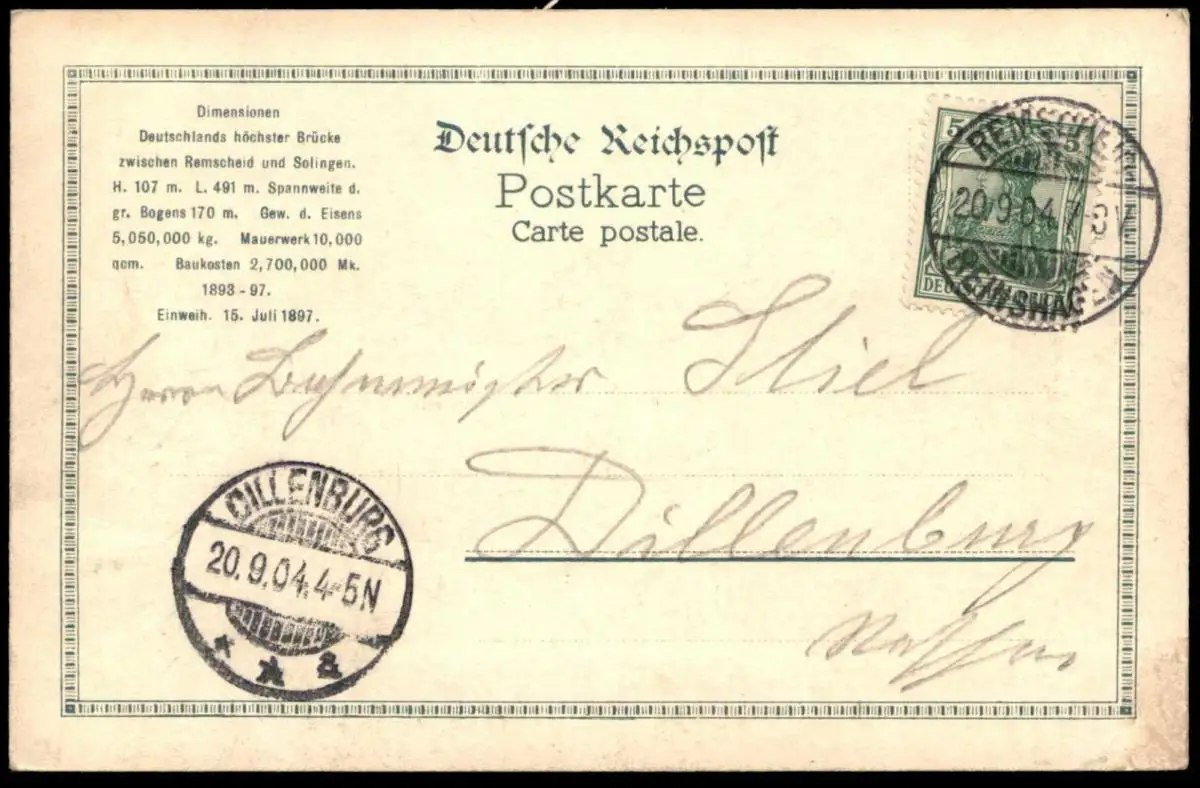 Dimensionen
Deutschlands höchster Brücke
zwischen Remscheid und Solingen.
H. 107 m. L. 491 m. Spannweite d.
gr. Bogens 170 m. Gew. d. Eisens
5,050,000 kg. Mauerwerk 10,000
qcm. Baukosten 2,700,000 Mk.
1893-97.
Einweih. 15. Juli 1897.
Deutsche Reichspost
Postkarte
Carte postale.
5 5
REMSCHEID
20 9 04 7-8V
REINSHAGEN
Herrn Bahnmeister Stiel
Dillenburg
Nassau
DILLENBURG
20.9.04.4-5N
* a